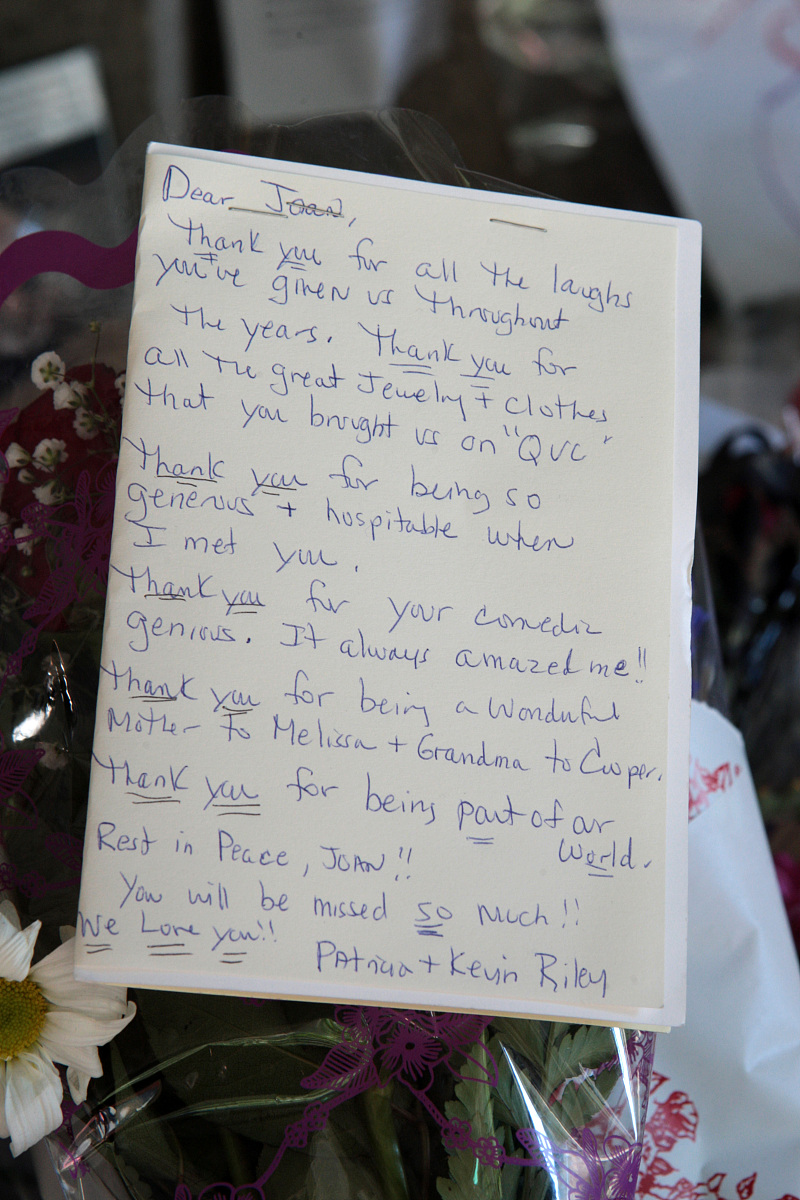 Dear Joan,
Thank you for all the laughs
you've given us throughout
the years. Thank you for
all the great Jewelry + clothes
that you brought us on "QVC"
Thank you for being so
generous + hospitable when
I met you.
Thank you for your comedic
genious. It always amazed me!!
Thank you for being a Wonderful
Mother to Melissa + Grandma to Cooper.
Thank you for being part of our
World.
Rest in Peace, JOAN!!
You will be missed so much!!
We Love you!!
Patricia + Kevin Riley